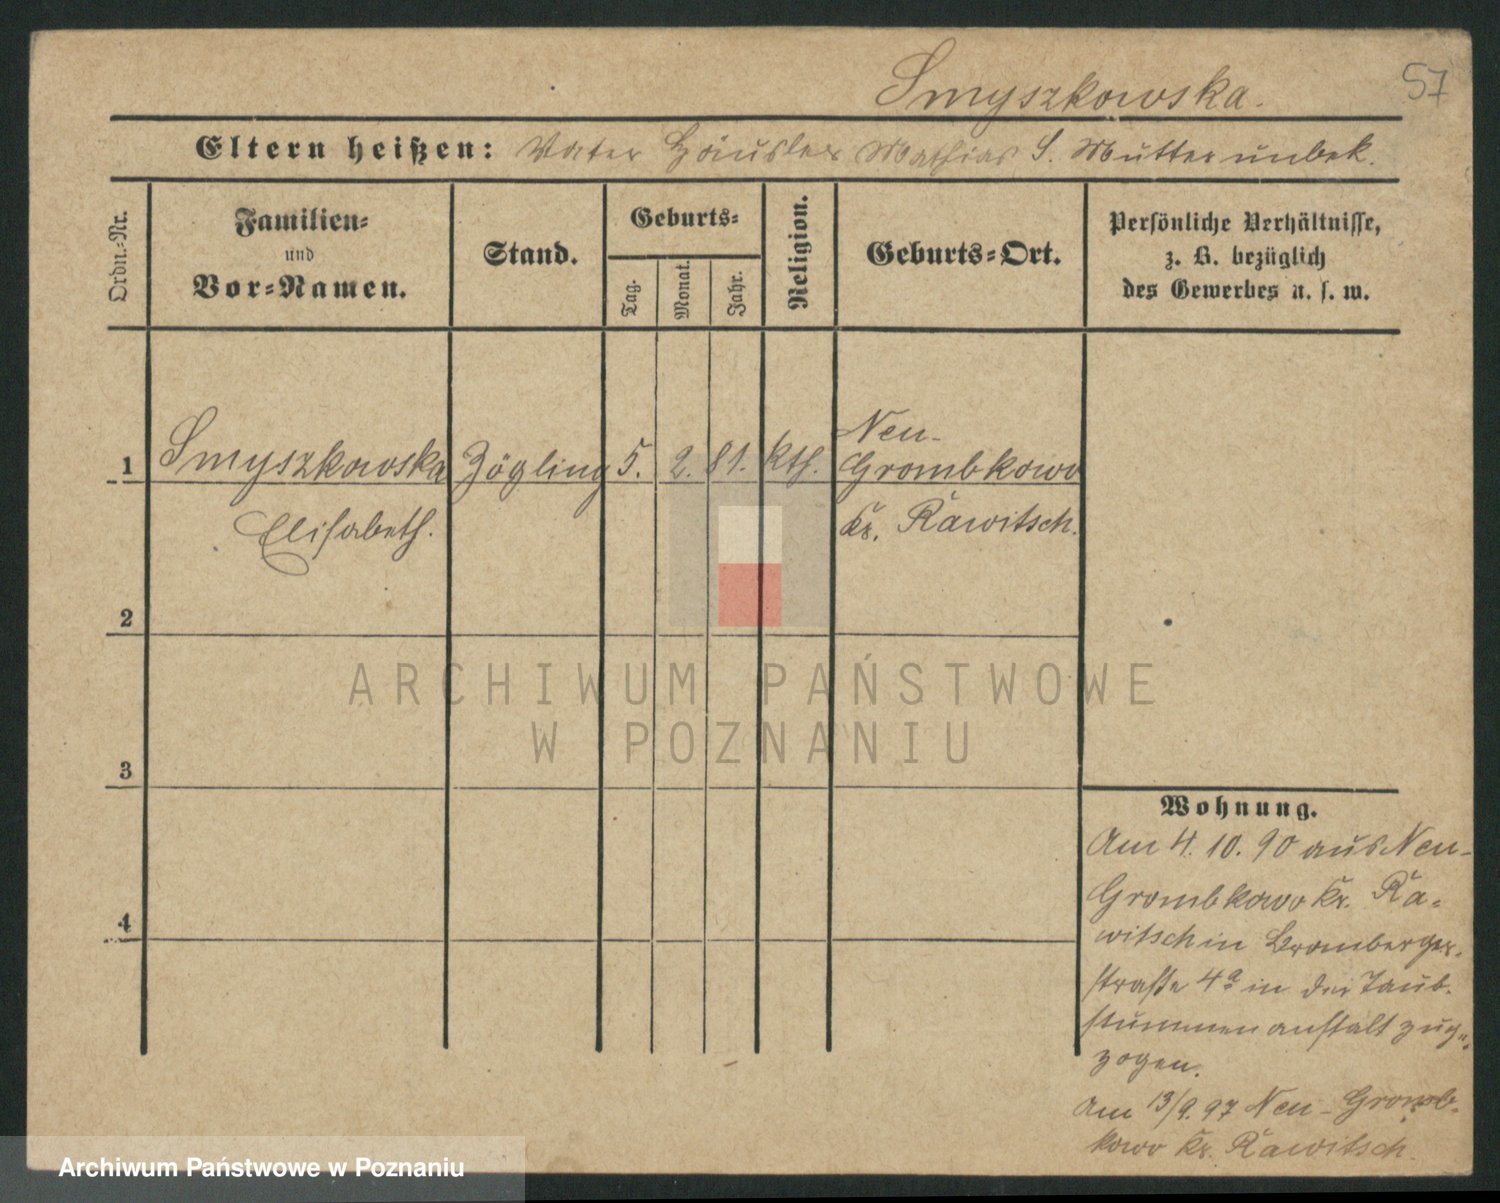 57
Smyszkowska.
Eltern heißen: Vater Häusler Mathias S. Mutter unbek.
Ordn.-Nr.
Familien-
und
Vor-Namen.
Stand.
Geburts-
Tag.
Monat.
Jahr.
Religion.
Geburts-Ort.
Persönliche Verhältnisse,
z. B. bezüglich
des Gewerbes u. s. w.
1 Smyszkowska Zögling 5. 2. 81. kth. Neu-
Grombkowo
Elisabeth. Kr. Rawitsch.
2
3
4
Wohnung.
Am 4. 10. 90 aus Neu-
Grombkowo Kr. Ra-
witsch in Bromberger-
straße 4a in der Taub-
stummenanstalt zuge-
zogen.
Am 13/9. 97 Neu-Gromb-
kowo Kr. Rawitsch.
ARCHIWUM PAŃSTWOWE
W POZNANIU
Archiwum Państwowe w Poznaniu